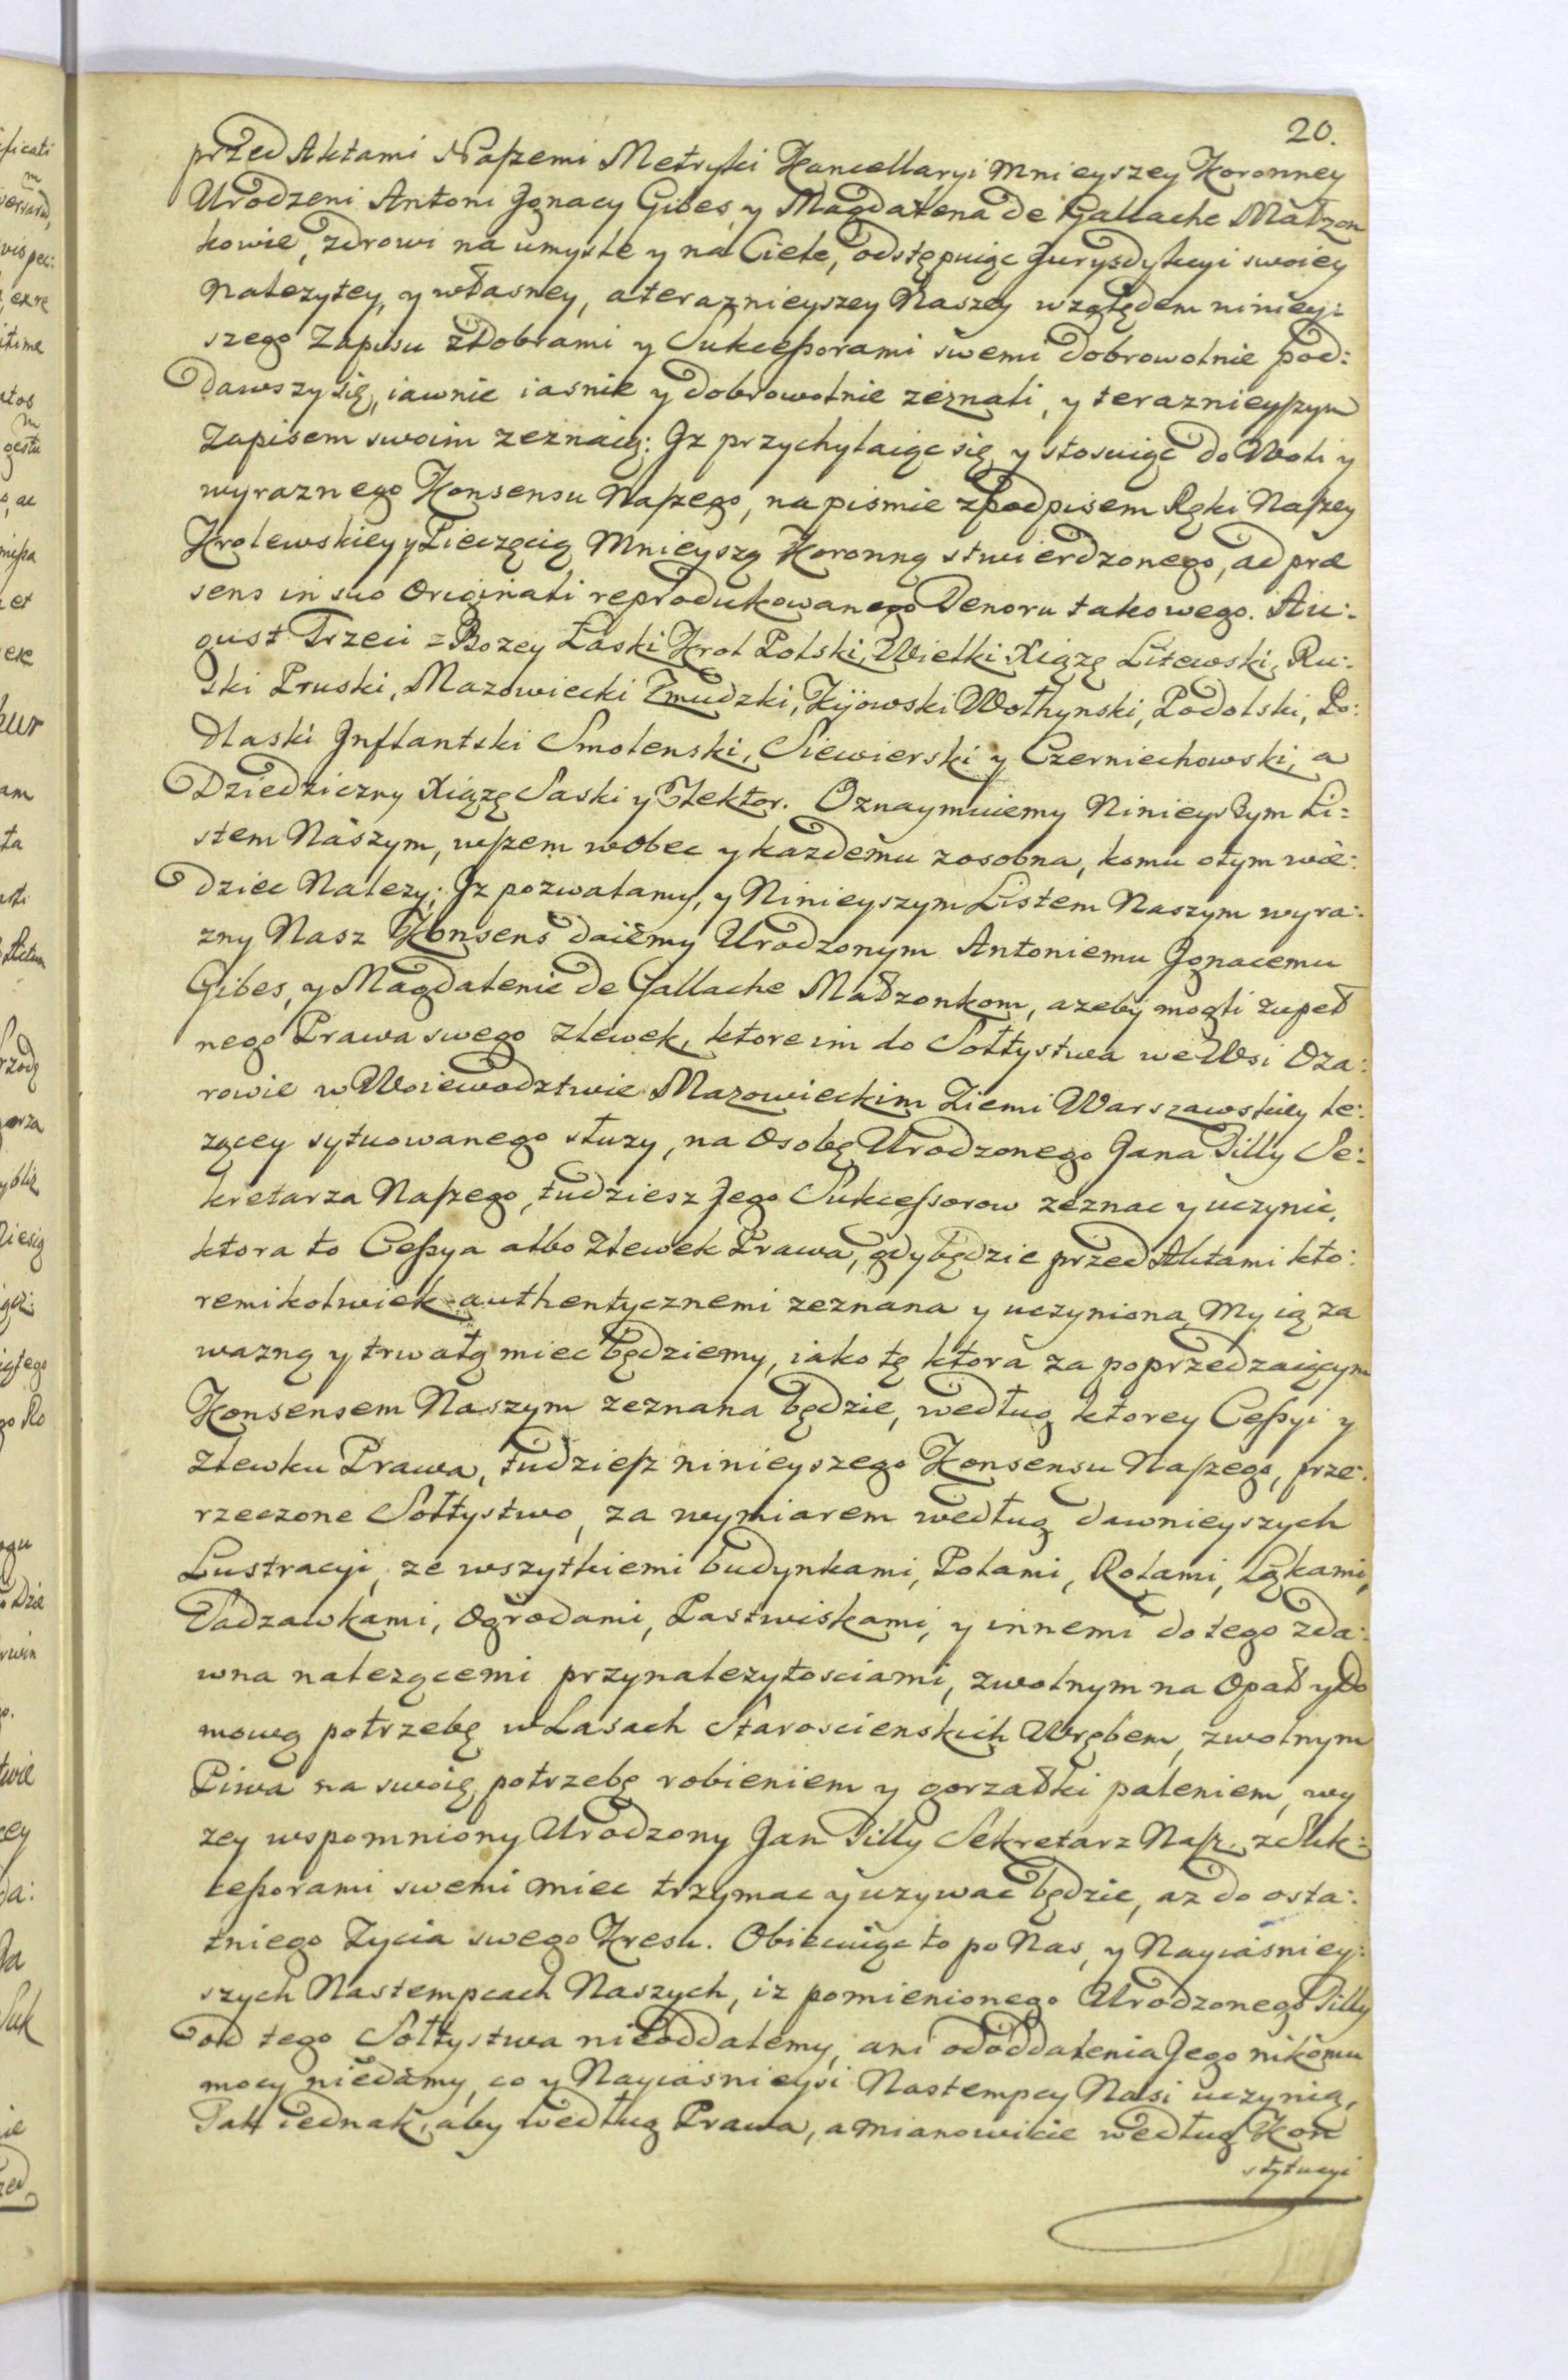 20.
przed Aktami Naszemi Metryki Kancellaryi Mnieyszey Koronney
Urodzeni Antoni Ignacy Gibes, y Magdalena de Gallache Małzon
kowie, zdrowi na umysle y na Ciele, odstępuiąc Jurysdykcyi swoiey
Nalezytey, y własney, a teraznieyszey Naszey względem ninieÿ:
szego Zapisu z Dobrami y Sukcessorami swemi dobrowolnie pod:
dawszy się, iawnie iasnie y dobrowolnie zeznali, y teraznieyszym
Zapisem swoim zeznaią: Iz przychylaiąc się y stosuiąc do Woli y
wyraznego Konsensu Naszego, na pismie z podpisem Ręki Naszey
Krolewskiey y Pieczęcią Mnieyszą Koronną stwierdzonego, ad præ
sens in suo Originali reprodukowanego Tenoru takowego. Au:
gust Trzeci z Bozey Łaski Krol Polski, Wielki Xiążę Litewski, Ru:
ski Pruski, Mazowiecki Zmudzki, Kijowski Wołhynski, Podolski, Po:
dlaski Inflantski Smolenski, Siewierski y Czerniechowski, a
Dziedziczny Xiążę Saski y Elektor. Oznaymuiemy Ninieyszym Li:
stem Naszym, wszem wobec y kazdemu zosobna, komu otym wie:
dziec Nalezy; Iz pozwalamy, y Ninieyszym Listem Naszym wyra:
zny Nasz Konsens daiemy Urodzonym Antoniemu Ignacemu
Gibes, y Magdalenie de Gallache Małzonkom, azeby mogli zupeł
nego Prawa swego zlewek, ktore im do Sołtystwa we Wsi Oza:
rowie w Woiewodztwie Mazowieckim Ziemi Warszawskiey le:
zącey sytuowanego słuzy, na Osobę Urodzonego Jana Tilly Se:
kretarza Naszego, tudziesz Jego Sukcessorow zeznac y uczynic,
ktora to Cessya albo Zlewek Prawa, gdy będzie przed Aktami kto:
remikolwiek authentycznemi zeznana y uczyniona, My ią za
wazną y trwałą miec będziemy, iako tę ktora za poprzedzaiącym
Konsensem Naszym zeznana będzie, według ktorey Cessyi y
Zlewku Prawa, tudziesz ninieyszego Konsensu Naszego, prze:
rzeczone Sołtystwo, za wymiarem według dawnieyszych
Lustracyi, ze wszytkiemi budynkami, Polami, Rolami, Łąkami,
Sadzawkami, Ogrodami, Pastwiskami, y innemi do tego zda:
wna nalezącemi przynalezytosciami, z wolnym na Opał y Do
mową potrzebę w Lasach Staroscienskich Wrębem, z wolnym
Piwa na swoię potrzebę robieniem y gorzałki paleniem, wy
zey wspomniony Urodzony Jan Tilly Sekretarz Nasz, z Suk:
cessorami swemi miec trzymac y uzywac będzie, az do osta:
tniego Zycia swego Kresu. Obiecuiąc to po Nas, y Nayiasniey:
szych Nastempcach Naszych, iz pomienionego Urodzonego Tilly
od tego Sołtystwa nieoddalemy, ani od oddalenia Jego nikomu
mocy niedamy, co y Nayiasnieysi Nastempcy Nasi uczynią,
Tak iednak, aby według Prawa, a mianowicie według Kon
stytucyi